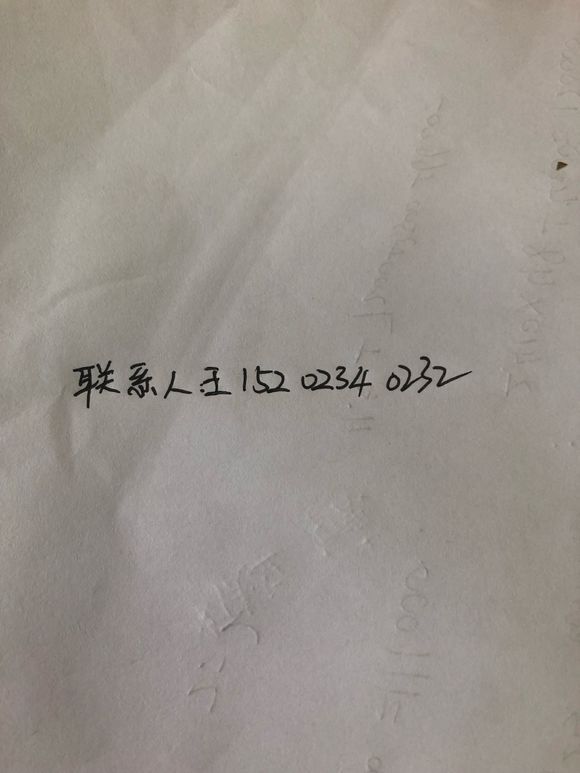 联系人王 152 0234 0232